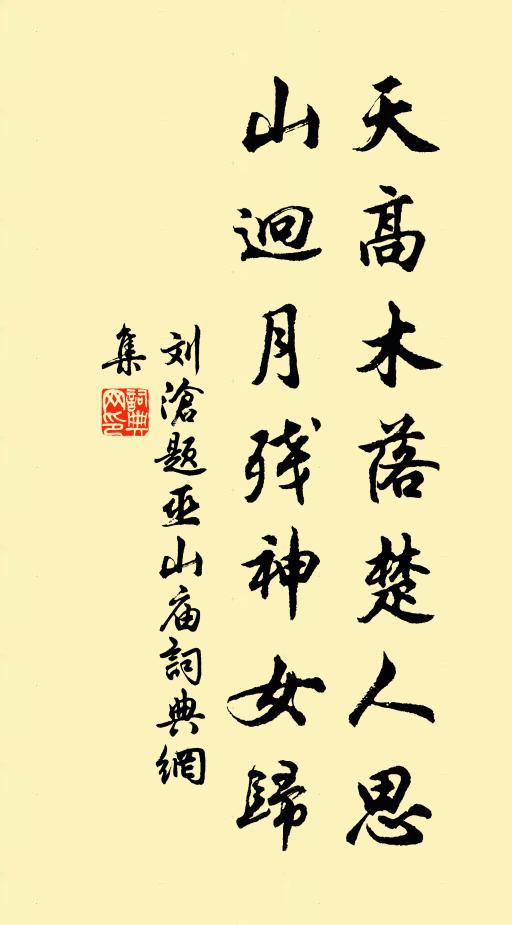 天高木落楚人思
山迥月残神女歸
刘滄题巫山庙詞典網
集
詞典网印